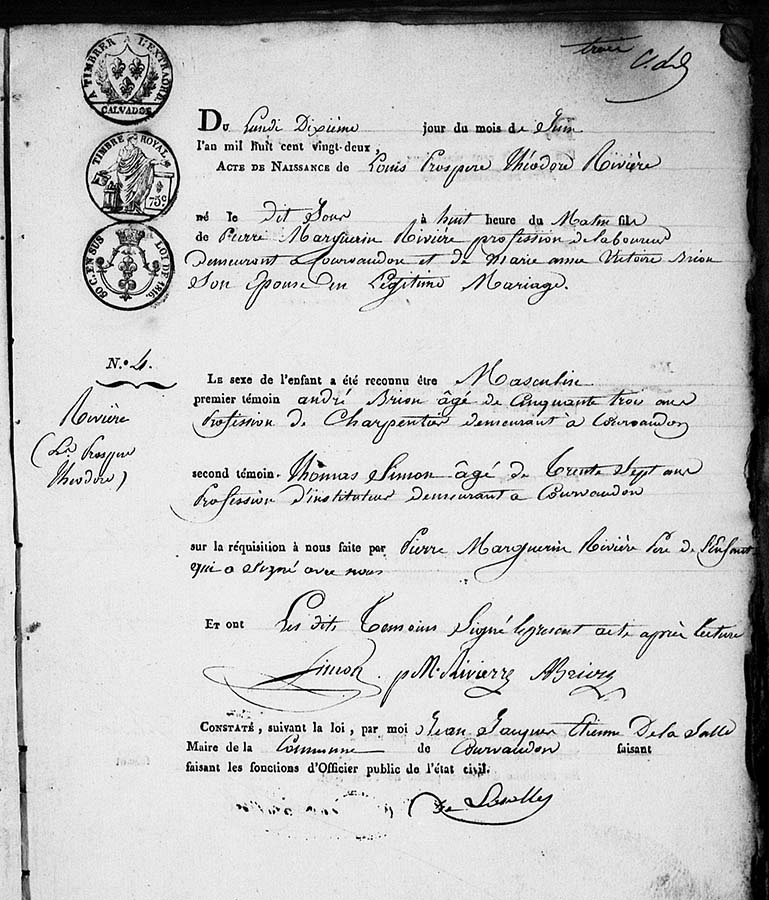 trois
C. del
A TIMBRER A L'EXTRAORD.
CALVADOS
TIMBRE ROYAL
75c
50 C. EN SUS LOI DE 1816.
Du Lundi Dixième jour du mois de Juin
l'an mil huit cent vingt-deux,
Acte de Naissance de Louis Prospere Théodore Rivière
né le dit Jour à huit heure du Matin fils
de Pierre Marguerin Rivière profession de laboureur
demeurant a Courvaudon et de Marie anne Victoire Brion
Son Epouse en Légitime Mariage.
N.o 4.
Rivière
(Ls Prospere
Théodore)
Le sexe de l'enfant a été reconnu être Masculin
premier témoin andré Brion âgé de Cinquante trois ans
Profession de Charpentier demeurant à Courvaudon
second témoin. Thomas Simon âgé de Trente Sept ans
Profession d'instituteur demeurant a Courvaudon
sur la réquisition à nous faite par Pierre Marguerin Rivière Père de l'Enfant
qui a Signé avec nous
Et ont Les dits Temoins Signé le present acte après lecture
Simon. p M. Rivierre ABrion
Constaté, suivant la loi, par moi Jean Jacques Etienne De la Salle
Maire de la Commune de Courvaudon faisant
faisant les fonctions d'Officier public de l'état civil.
De Laselle